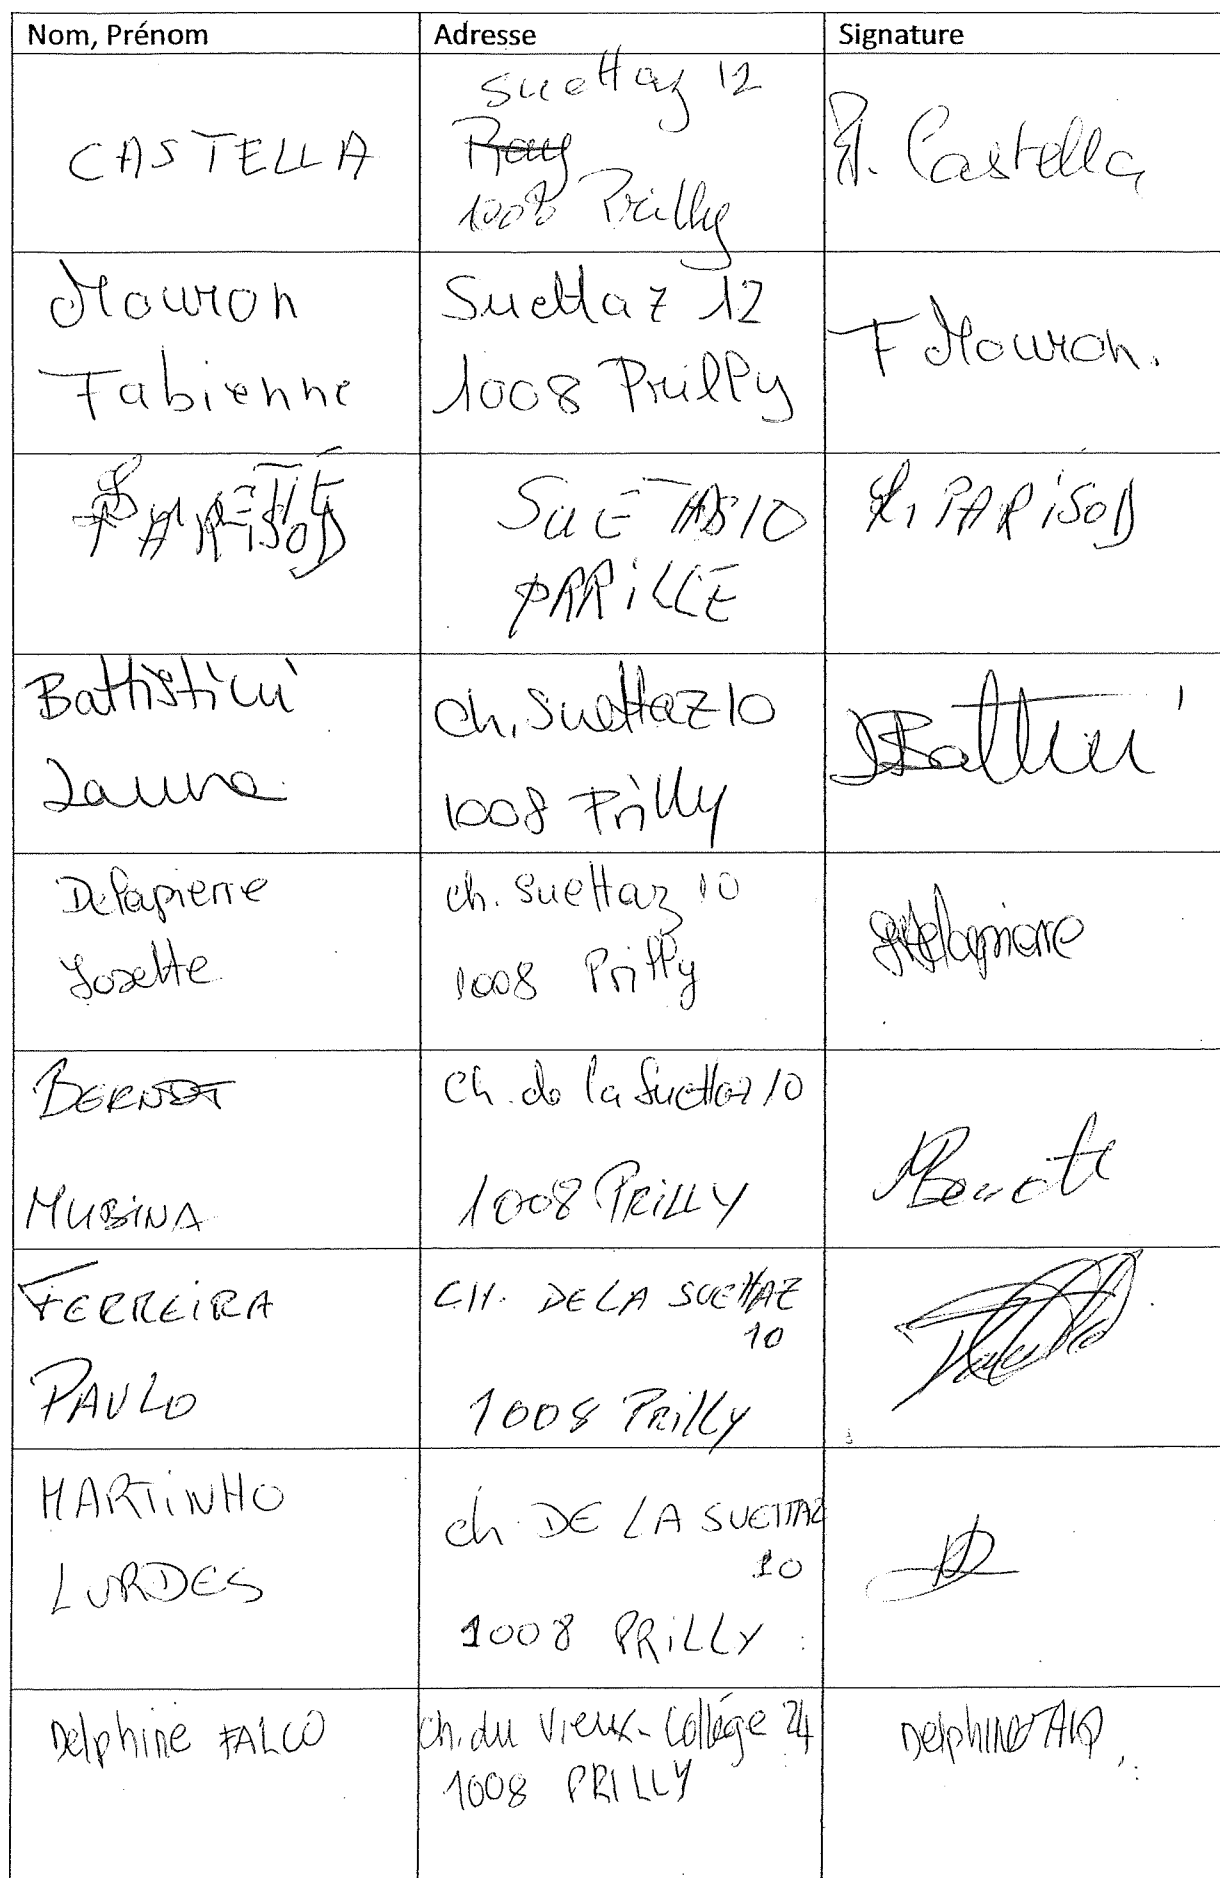 Nom, Prénom
Adresse
Signature
CASTELLA
Suettaz 12
Ray
1008 Prilly
P. Castella
Mouron
Fabienne
Suettaz 12
1008 Prilly
F Mouron.
PARISOD
SUETAS 10
PRRiLLE
PARiSOD
Battistini
ch. Suettaz 10
1008 Prilly
Delapierre
Josette
ch. Suettaz 10
1008 Prilly
Delapierre
BERNDT
MUBiNA
ch. de la Suettaz 10
1008 PRiLLY
FERREiRA
PAULO
CH. DE LA SUEttAZ
10
1008 PRilly
MARTiNHO
LURDES
ch. DE LA SUETTAZ
10
1008 PRiLLY
Delphine FALCO
ch. du Vieux-Collège 24
1008 PRILLY